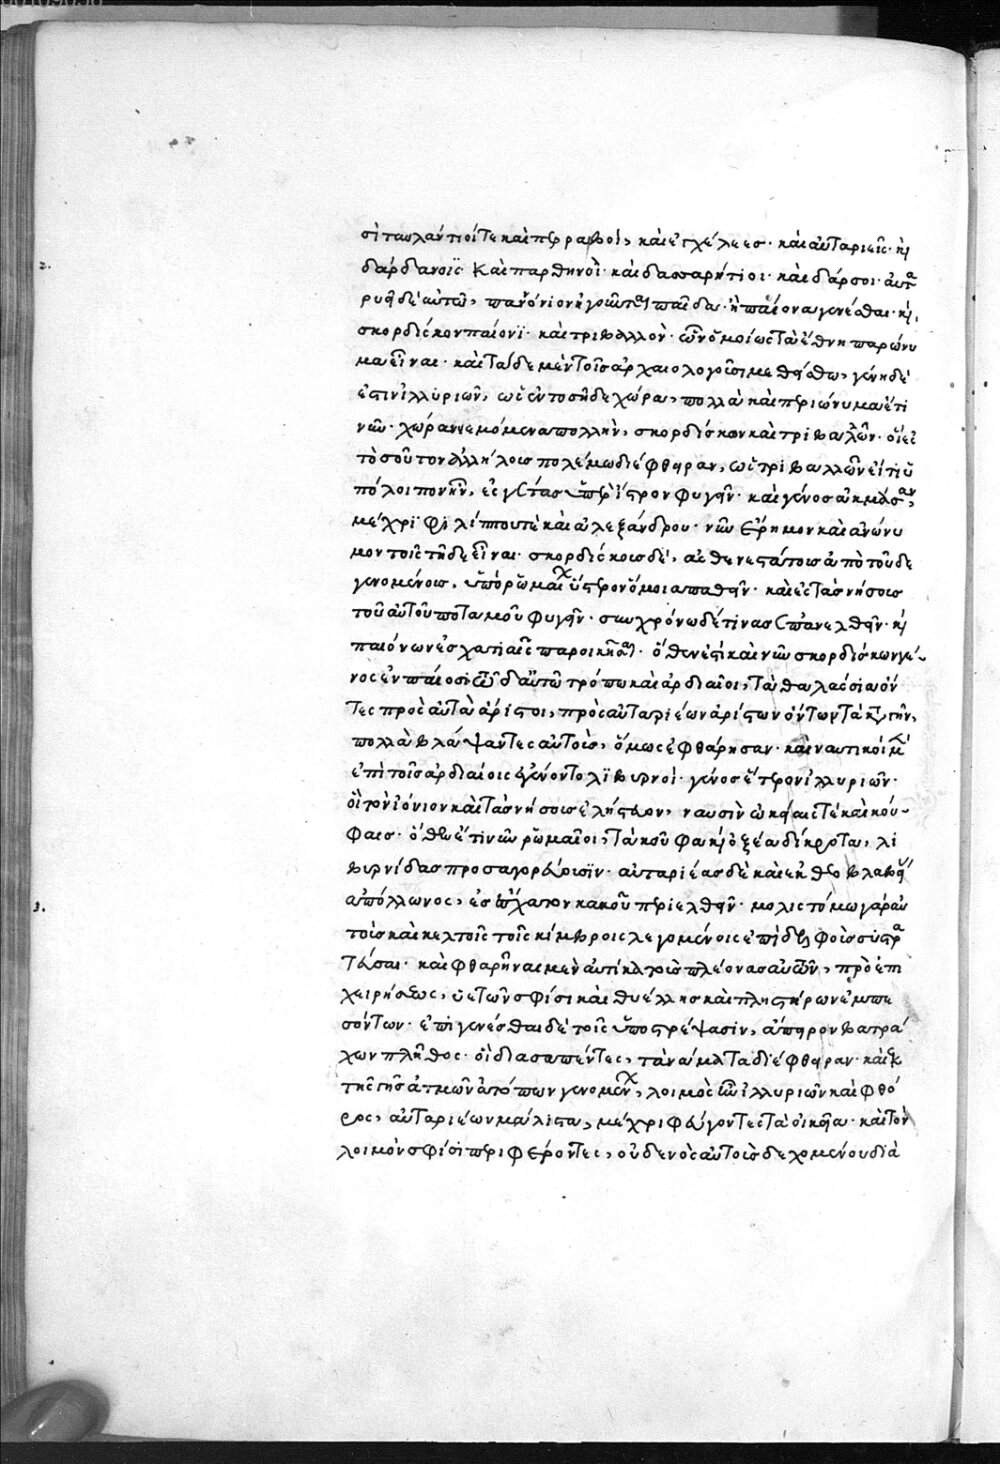 σὶ ταυλάντιοί τε καὶ περραιβοὶ, καὶ ἐγχέλεες· καὶ αὐταριεῖς· καὶ
2. δάρδανοῖς καὶ παρθηνοὶ· καὶ δασσαρήτιοι· καὶ δάρσοι· αὐτα
ρυῆ δὲ αὐτῶ, παννόνιον ἡγοῦνται παῖδα· ἢ παίονα γενέσθαι· καὶ
σκορδίσκον παίονϊ· καὶ τριβαλλὸν· ὧν ὁμοίως τὰ ἔθνη παρώνυ
μα εἶναι· καὶ τάδε μὲν τοῖς ἀρχαιολογοῦσι μεθείσθω, γένη δέ
ἐστιν ἰλλυριῶν, ὡς ἐν τοσῆδε χώρα, πολλὰ καὶ περιώνυμα ἔτι
νῦν· χώραν νεμόμενα πολλὴν, σκορδίσκων καὶ τριβαλῶν· οἳ ἐς
τοσοῦτον ἀλλήλους πολέμω διέφθειραν, ὡς τριβαλλῶν εἴ τι ὑ
πόλοιπον ἦν, ἐς γέτας ὑπὲρ ἴστρον φυγεῖν· καὶ γένος ἀκμάσαν,
μέχρι φιλίππου τὲ καὶ ἀλεξάνδρου· νῦν ἔρημον καὶ ἀνώνυ
μον τοῖς τῆδε εἶναι· σκορδίσκους δὲ, ἀσθενεστάτους ἀπὸ τοῦδε
γενομένους, ὑπὸ ῥωμαίων ὕστερον ὅμοια παθεῖν· καὶ ἐς τὰς νήσους
τοῦ αὐτοῦ ποταμοῦ φυγεῖν· σὺν χρόνω δέ τινας ἐπανελθεῖν· καὶ
παιόνων ἐσχατιαῖς παροικῆσαι· ὅθεν ἔστι καὶ νῦν σκορδίσκων γέ-
νος ἐν παίοσι τῶ δ' αὐτῶ τρόπω καὶ ἀρδιαῖοι, τὰ θαλάσσια ὄν
τες πρὸς αὐταριέων ἀρίστων ὄντων τὰ κατὰ γῆν,
πολλὰ βλάψαντες αὐτοὺς, ὅμως ἐφθάρησαν· καὶ ναυτικοὶ μὲν
ἐπὶ τοῖς ἀρδιαίοις ἐγένοντο λϊβυρνοὶ· γένος ἕτερον ἰλλυριῶν·
οἳ τὸν ἰόνιον καὶ τὰς νήσους ἐλήστευον, ναυσὶν ὠκείαις τὲ καὶ κού-
φαις· ὅθεν ἔτι νῦν ῥωμαῖοι, τὰ κοῦφα καὶ ὀξέα δίκροτα, λι
βυρνίδας προσαγορεύουσϊν· αὐταριέας δὲ καὶ ἐκ θεοβλαβείας
3. ἀπόλλωνος, ἐς ἔσχατον κακοῦ περιελθεῖν· μολιστόμω γὰρ αὐ
τοὺς καὶ κελτοῖς τοῖς κίμβροις λεγομένοις ἐπὶ δελφοὺς συστρα
τεῦσαι· καὶ φθαρῆναι μὲν αὐτίκα τοὺς πλέονας αὐτῶν, πρὸ ἐπι
χειρήσεως, ὑετῶν σφίσι καὶ θυέλλης καὶ πληστήρων ἐμπε
σόντων· ἐπιγενέσθαι δὲ τοῖς ὑποστρέψασϊν, ἄπειρον βατρά
χων πλῆθος· οἳ διασαπέντες, τὰ νάματα διέφθειραν· καὶ ἐκ
τῆς γῆς ἀτμῶν ἀτόπων γενομένων, λοιμὸς ἦν ἰλλυριῶν καὶ φθό
ρος, αὐταριέων μάλιστα, μέχρι φεύγοντες τὰ οἰκεῖα· καὶ τὸν
λοιμὸν σφίσϊ περιφέροντες, οὐδενὸς αὐτοὺς δεχομένου διὰ